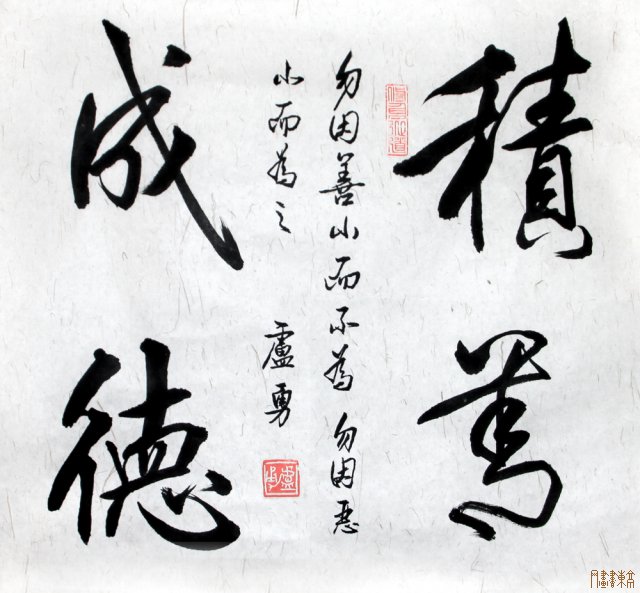 積善
成德
勿因善小而不為勿因惡
小而為之
盧勇